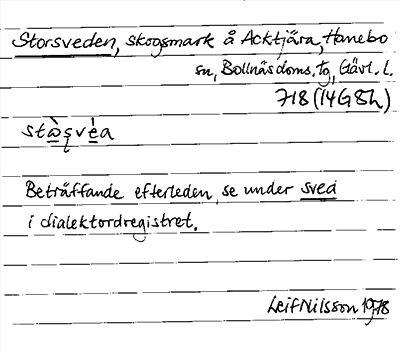 Storsveden, skogsmark å Acktjära, Hanebo
sn, Bollnäs doms. tg, Gävl. l.
718 (14G8h)
stὼşvė̀a
Beträffande efterleden, se under sved
i dialektordregistret.
Leif Nilsson 1978